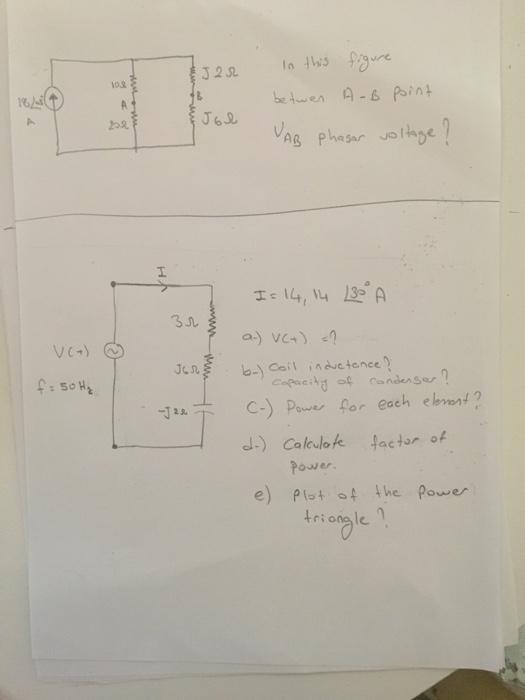 10Ω
A
20Ω
A
J2Ω
B
J6Ω
In this figure
between A-B point
VAB phasor voltage?
I
V(t)
f = 50 Hz
3Ω
J6Ω
-J2Ω
I = 14,14 ∠30° A
a-) V(t) = ?
b-) Coil inductence?
Capacity of condenser?
C-) Power for each element?
d-) Calculate factor of
power.
e) Plot of the power
triangle?